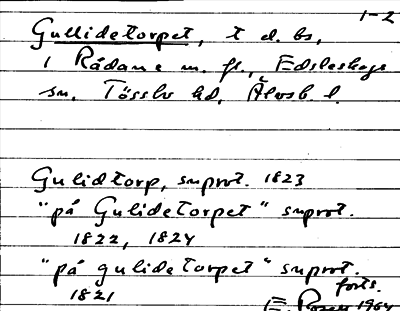 1-2
Gullidetorpet, t d. bs,
i Rådane m. fl., Edsleskogs
sn. Tössbo hd, Älvsb. l.
Gulidtorp, snprot. 1823
"på Gulidetorpet" snprot.
1822, 1824
"på gulidetorpet" snprot.
1821
forts.
E. Rosén 1964